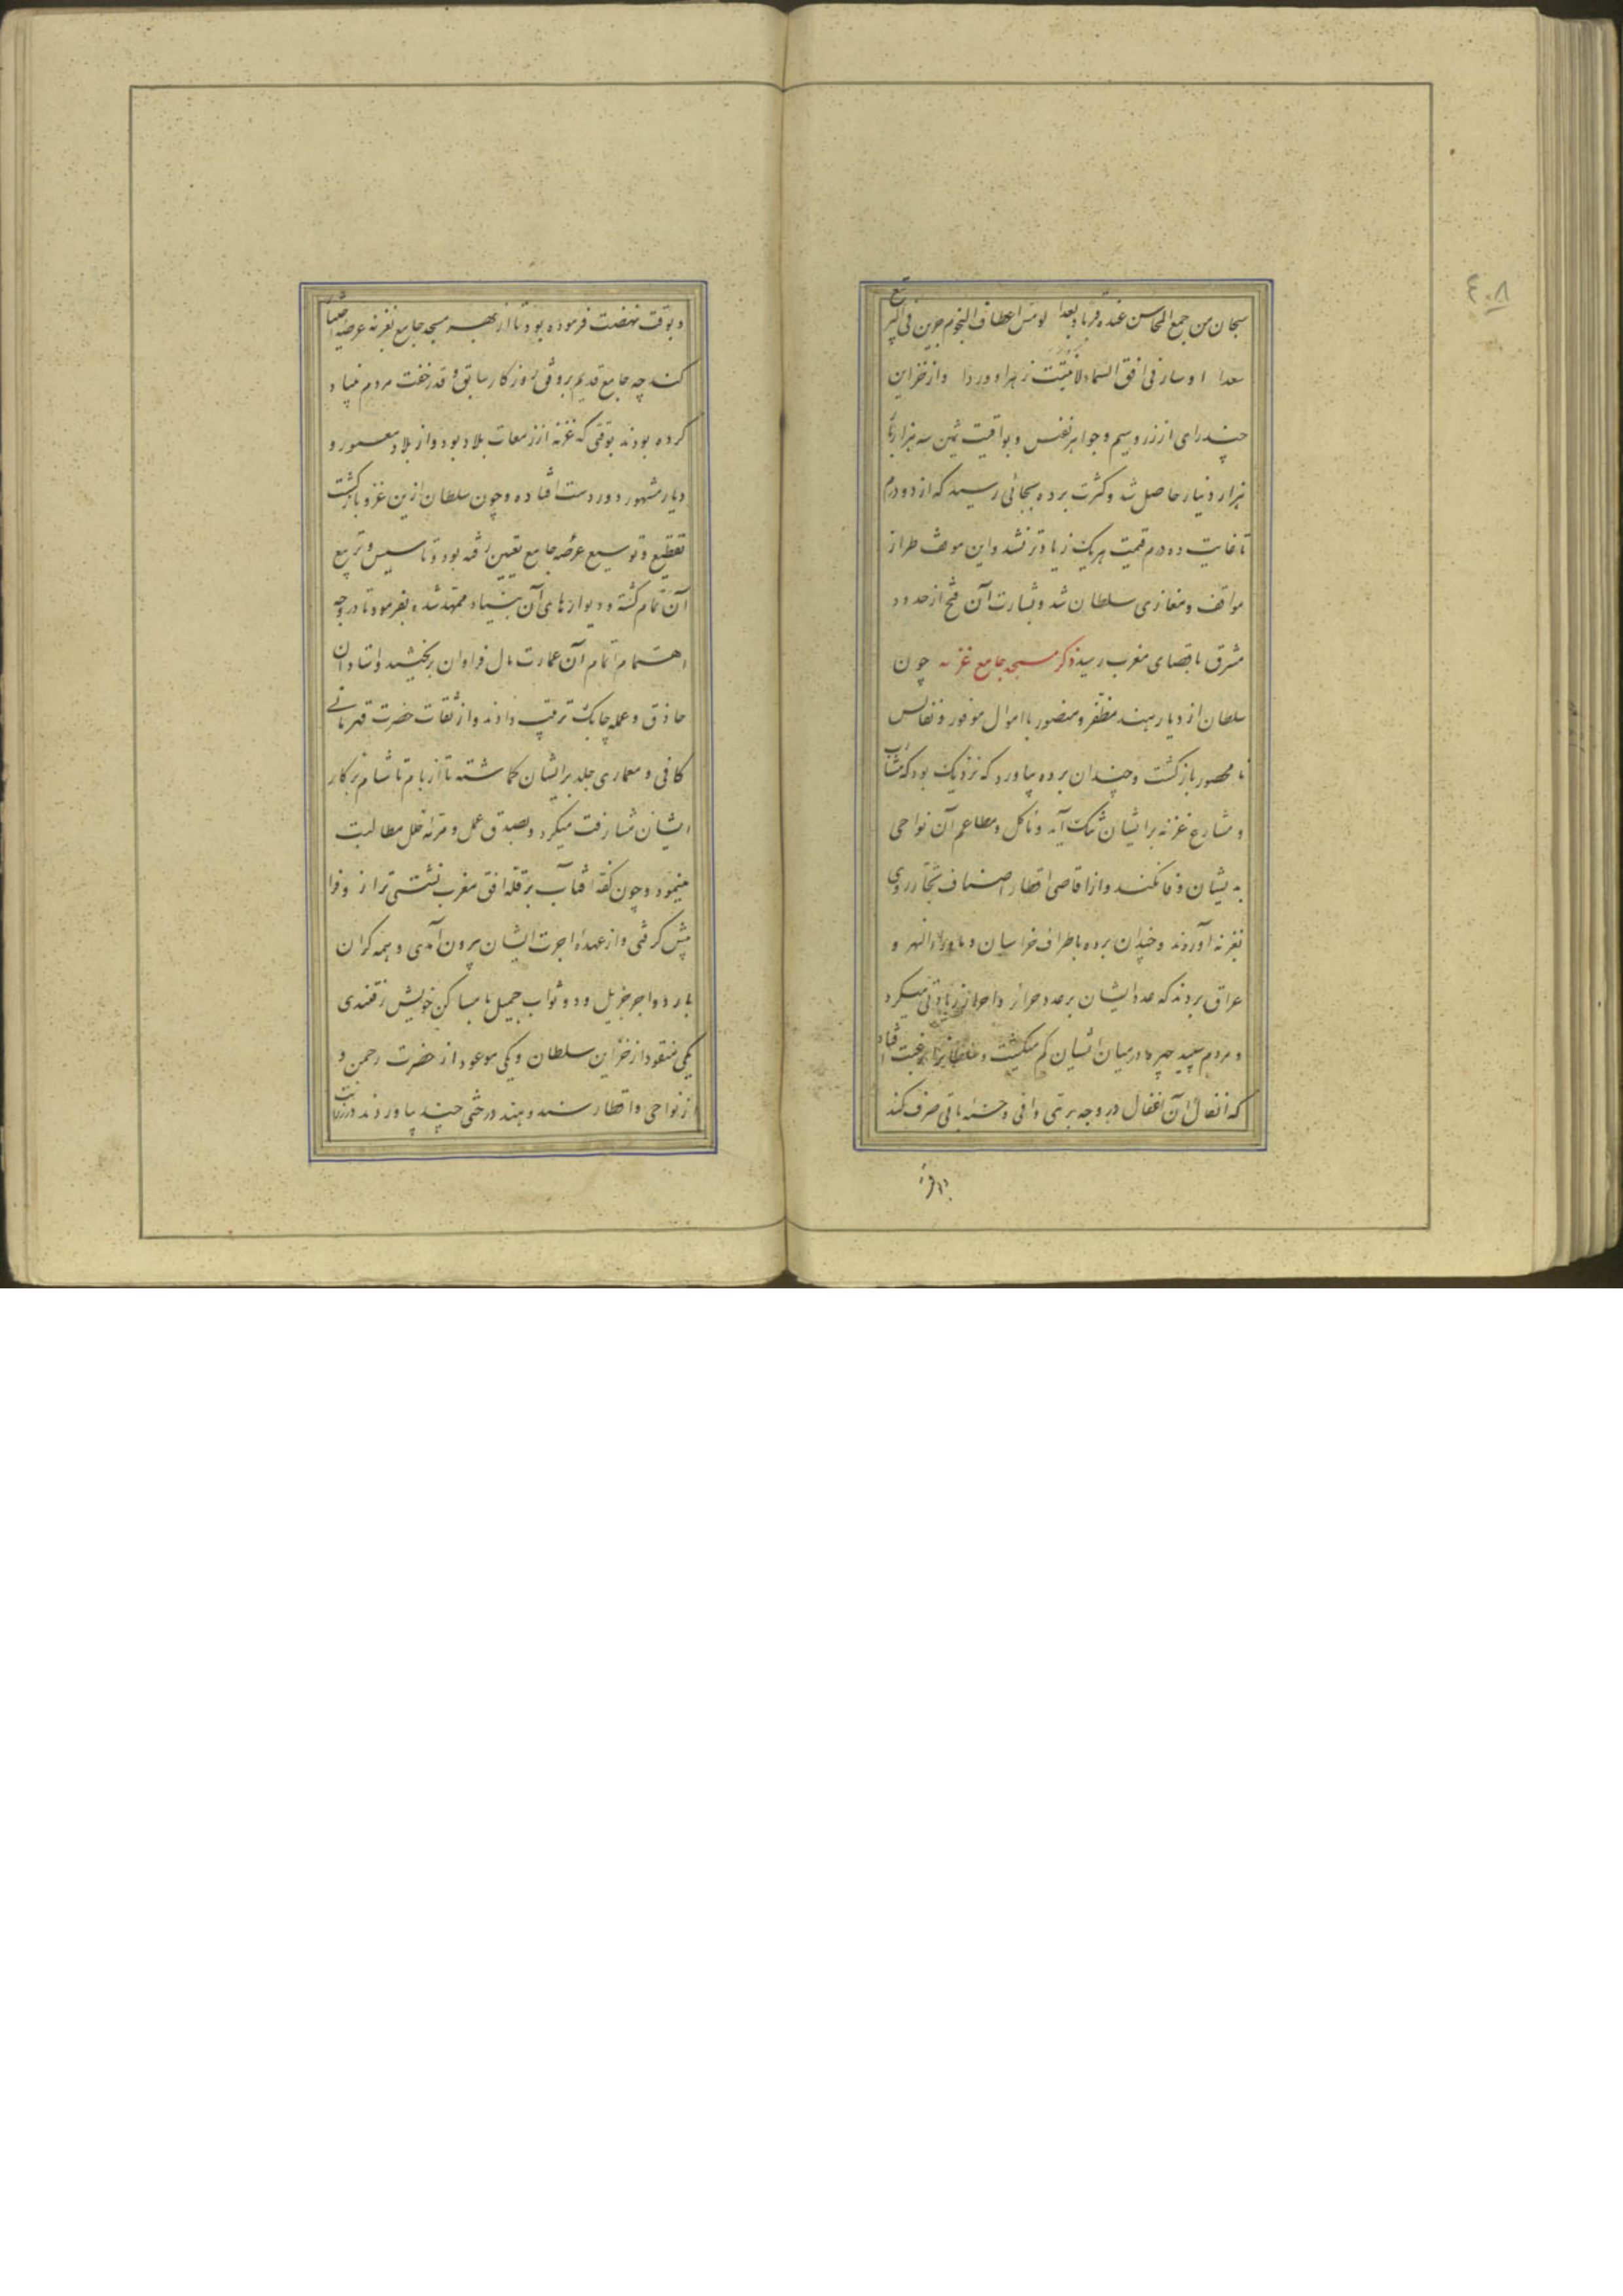 سبحان من جمع المحاسن عنده قربا و بعدا لو مس اعطاف النجوم جرین فی التربیع
سعدا او سار فی افق السماء لانبتت زهرا و وردا و از خزاین
چندرای از زر و سیم و جواهر نفیس و یواقیت ثمین سه هزار بار
هزار دینار حاصل شد و کثرت برده بجائی رسید که از دو درم
تا غایت ده درم قیمت هر یک زیادتر نشد و این موقف طراز
مواقف و مغازی سلطان شد و بشارت آن فتح از حدود
مشرق باقصای مغرب رسید ذکر مسجد جامع غزنه چون
سلطان از دیار هند مظفر و منصور با اموال موفور و نفایس
نا محصور بازگشت و چندان برده بیاورد که نزدیک بود که مشارب
و مشارع غزنه برایشان تنک آید و مآکل و مطاعم آن نواحی
بدیشان وفا نکند و از اقاصی اقطار اصناف تجار روی
بغزنه آوردند و چندان برده باطراف خراسان و ماوراء النهر و
عراق بردند که عدد ایشان بر عدد حرایر و احرار زیادتی میکرد
و مردم سپید چهره در میان ایشان کم میکشت و سلطانرا رغبت افتاد
که انفال آن اغفال در وجه برّی وافی و حسنه باقی صرف کند
و بوقت نهضت فرموده بود تا از بهر مسجد جامع بغزنه عرصه اختیار
کنند چه جامع قدیم بر وفق روزکار سابق و قدر خفت مردم بنیاد
کرده بودند بوقتی که غزنه از زمعات بلاد بود و از بلاد معمور و
دیار مشهور دور دست افتاده و چون سلطان ازین غزو بازکشت
تقطیع و توسیع عرصه جامع تعیین رفته بود و تاسیس و تربیع
آن تمام کشته و دیوارهای آن بنیاد ممهد شده بفرمود تا در وجه
اهتمام اتمام آن عمارت مال فراوان بریختند و استادان
حاذق و عمله چابک ترتیب دادند و از ثقات حضرت قهرمانی
کافی و معماری جلد برایشان کماشته تا از بام تا شام بر کار
ایشان مشارفت میکرد و بصدق عمل و مرمّه خلل مطالبت
مینمود و چون کفه آفتاب بر قله افق مغرب نشستی ترازو فرا
پیش کرفتی و از عهده اجرت ایشان بیرون آمدی و همه کران
بار دو اجر جزیل و دو ثواب جمیل با مساکن خویش رفتندی
یکی منقود از خزاین سلطان و یکی موعود از حضرت رحمن و
از نواحی و اقطار سند و هند درختی چند بیاوردند در رزانت